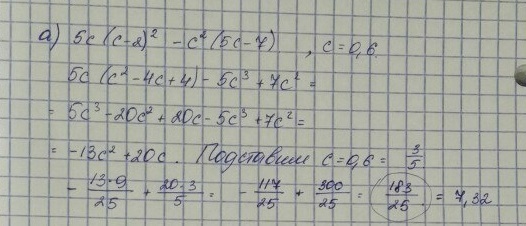 а) 5c (c-2)² - c² (5c-7) , c = 0,6
5c (c² - 4c + 4) - 5c³ + 7c² =
= 5c³ - 20c² + 20c - 5c³ + 7c² =
= -13c² + 20c. Подставим c = 0,6 = 3/5
- 13·9/25 + 20·3/5 = - 117/25 + 300/25 = 183/25 = 7,32